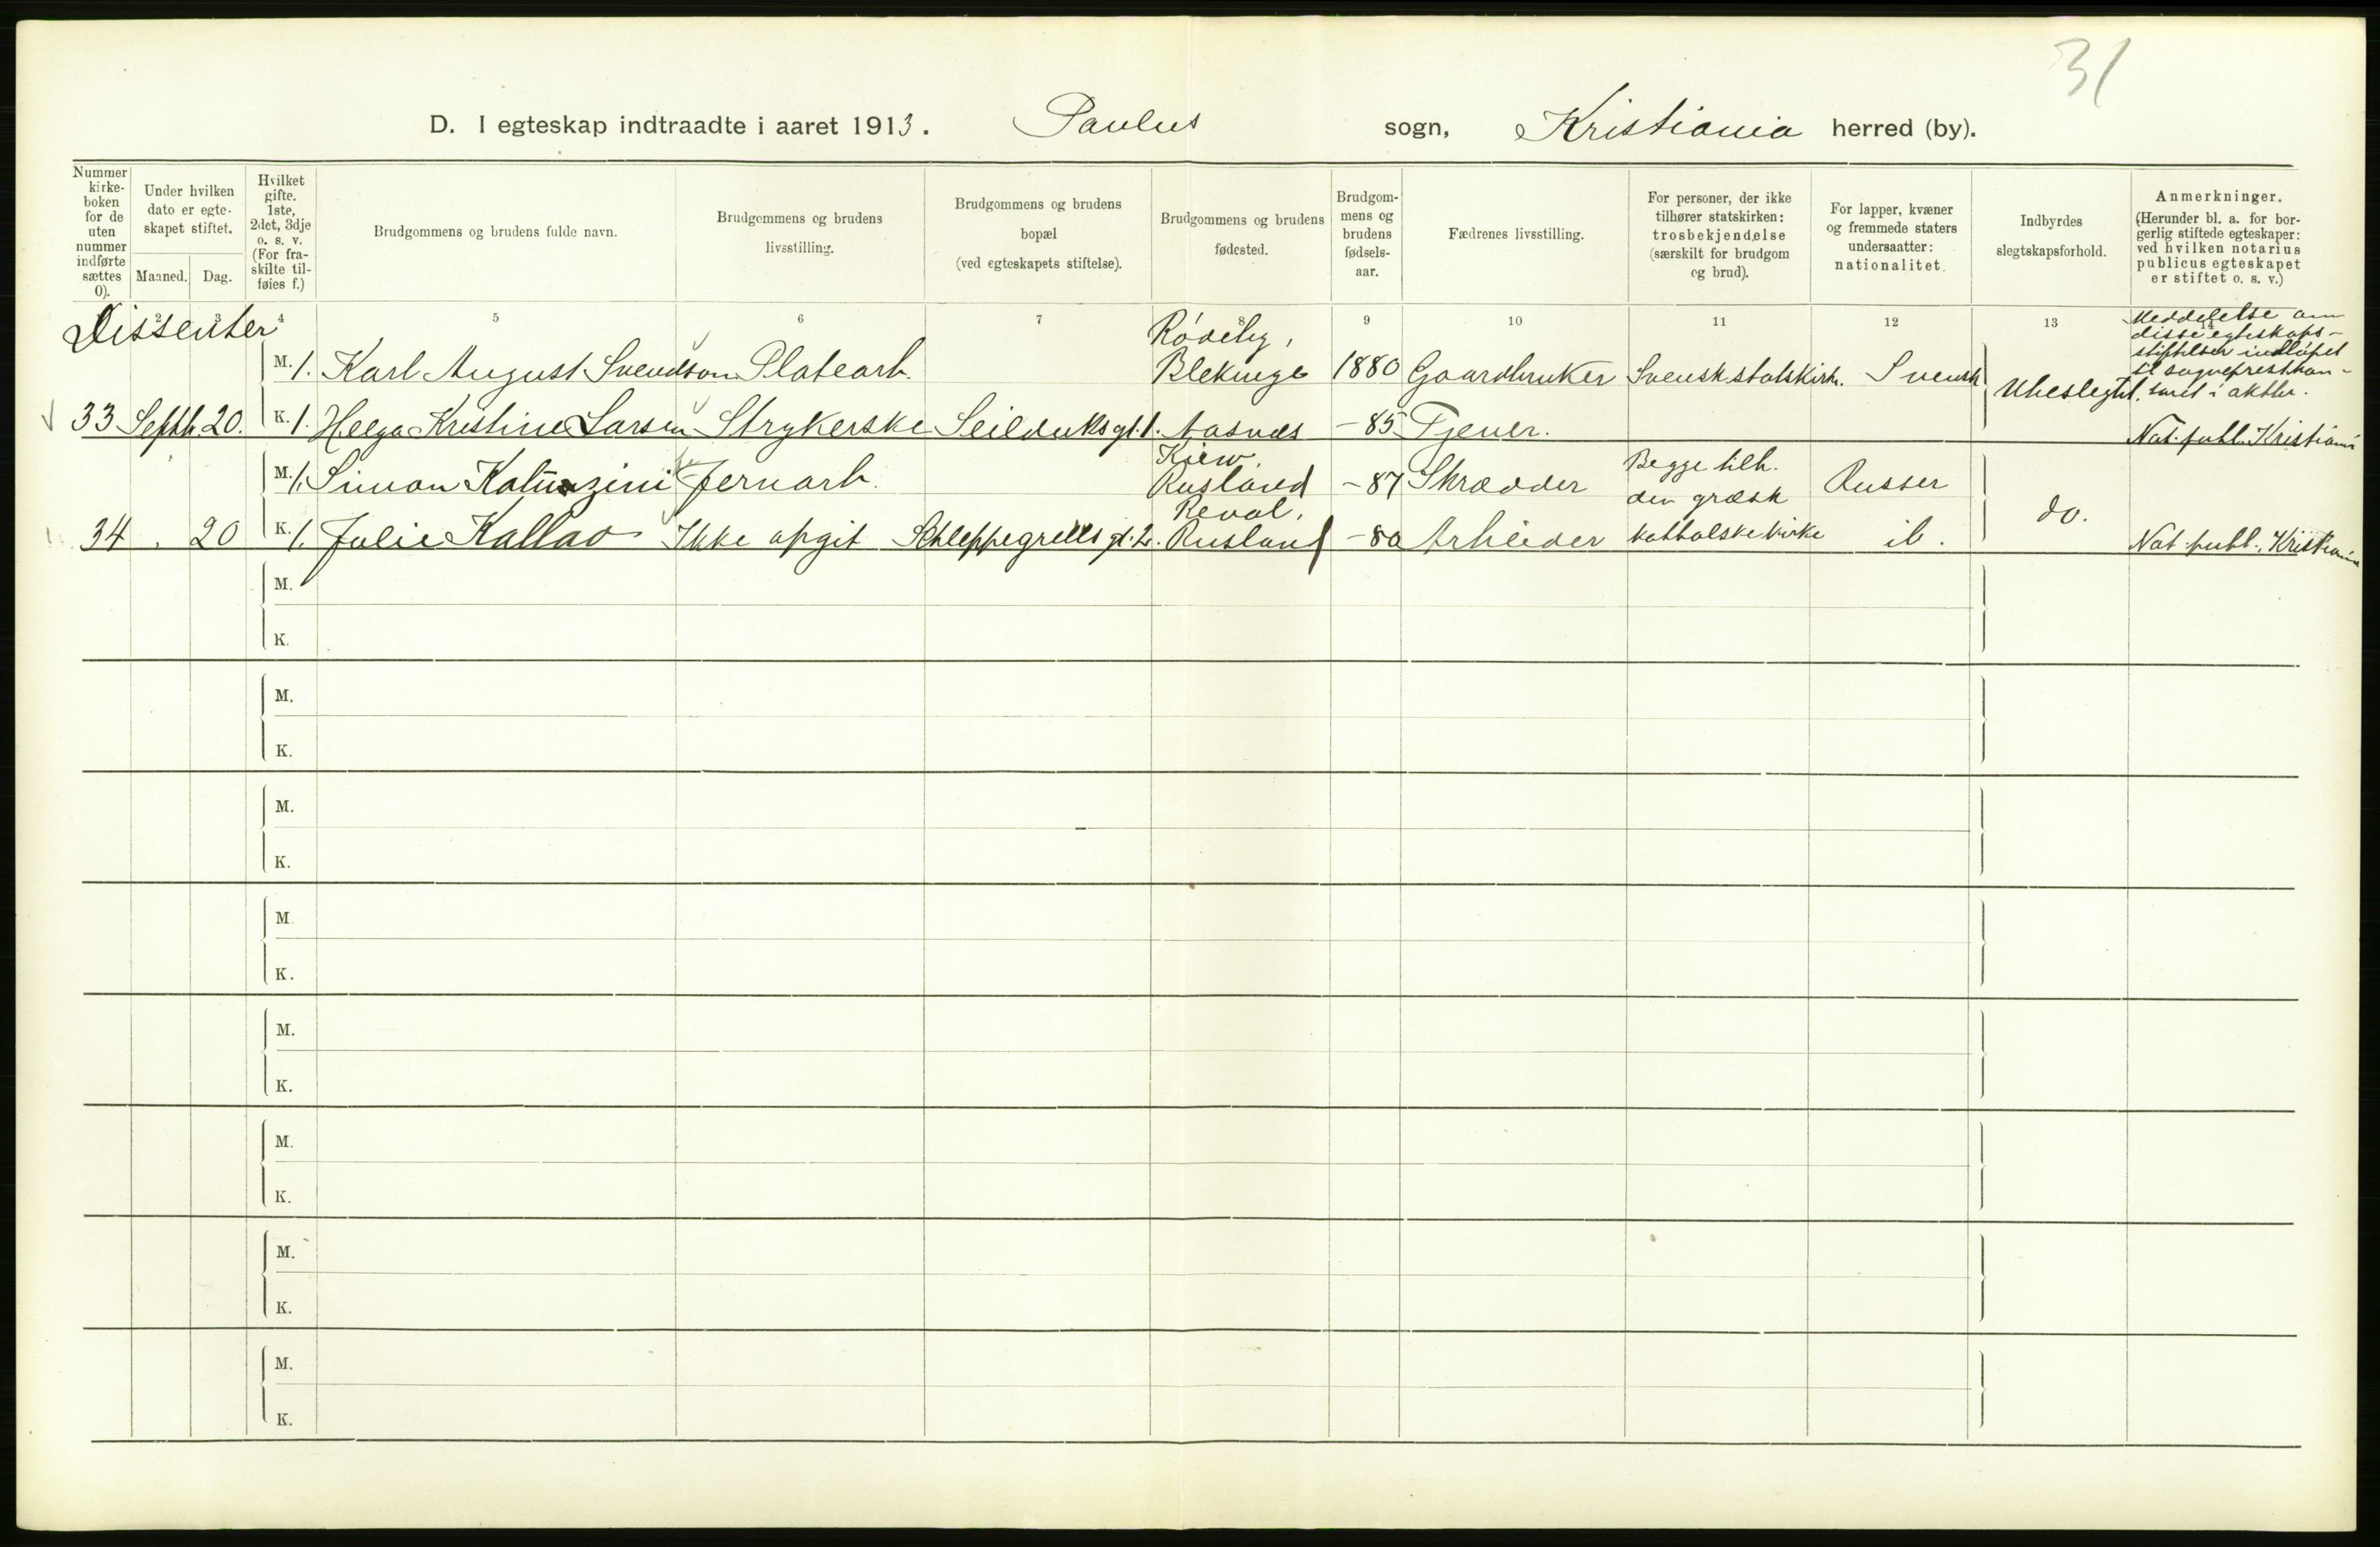 31
D. I egteskap indtraadte i aaret 1913. Paulus sogn, Kristiania herred (by).
Nummer kirke-boken for de uten nummer indførte sættes 0).
Under hvilken dato er egte-skapet stiftet.
Maaned. Dag.
Hvilket gifte. 1ste, 2det, 3dje o. s. v. (For fra-skilte til-føies f.)
Brudgommens og brudens fulde navn.
Brudgommens og brudens livsstilling.
Brudgommens og brudens bopæl (ved egteskapets stiftelse).
Brudgommens og brudens fødested.
Brudgom-mens og brudens fødsels-aar.
Fædrenes livsstilling.
For personer, der ikke tilhører statskirken: trosbekjendelse (særskilt for brudgom og brud).
For lapper, kvæner og fremmede staters undersaatter: nationalitet.
Indbyrdes slegtskapsforhold.
Anmerkninger. (Herunder bl. a. for bor-gerlig stiftede egteskaper: ved hvilken notarius publicus egteskapet er stiftet o. s. v.)
2 3 4 5 6 7 8 9 10 11 12 13 14
Dissenter
Meddelelse om disse egteskaps-stiftelser indløpet til sogneprestkon-toret i aktter.
M. 1. Karl August Svendson Platearb. Rödeby, Blekinge 1880 Gaardbruker Svensk statskirk. Svensk
33 Septb. 20. K. 1. Helga Kristine Larsen Strykerske Seilduksgt. 1. Aasnes -85 Tjener. Ubeslegtet. Not. publ. Kristiania
M. 1. Simon Katunzini Jernarb. Kiew, Rusland -87 Skrædder Begge tilh. den græsk Russer
34 . 20 K. 1. Julie Kallao Ikke opgit Schleppegrells gt. 2. Reval, Rusland -80 Arbeider kathalske kirke ib. do. Not. publ., Kristiania
M.
K.
M.
K.
M.
K.
M.
K.
M.
K.
M.
K.
M.
K.
M.
K.